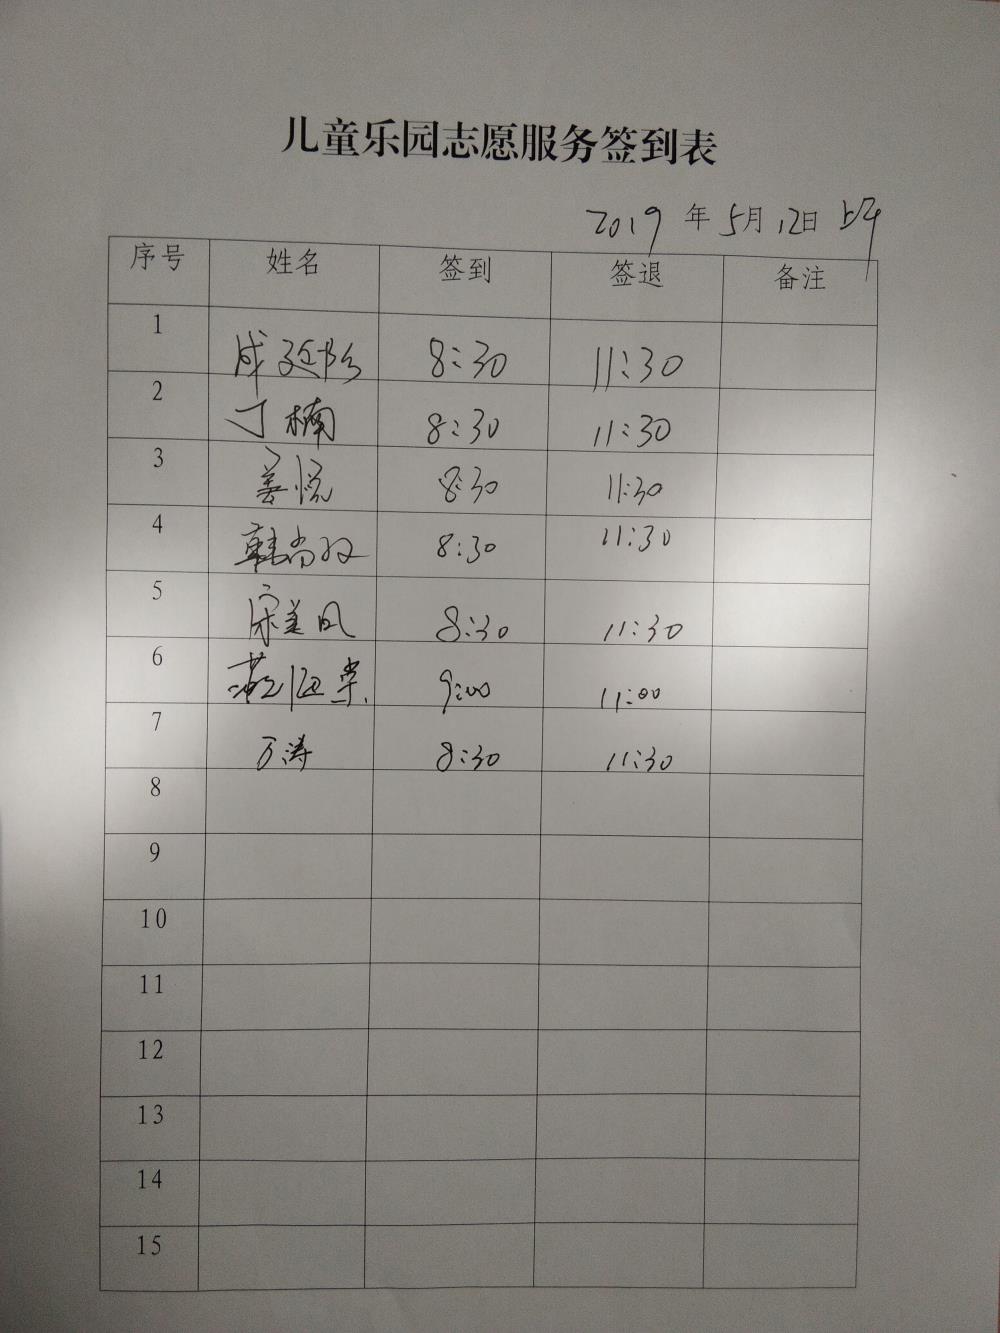 儿童乐园志愿服务签到表
2019 年 5月 12日 上午
序号 姓名 签到 签退 备注
1 成延 8:30 11:30
2 丁楠 8:30 11:30
3 姜悦 8:30 11:30
4 韩尚 8:30 11:30
5 宋美凤 8:30 11:30
6 海棠 9:00 11:00
7 万涛 8:30 11:30
8
9
10
11
12
13
14
15